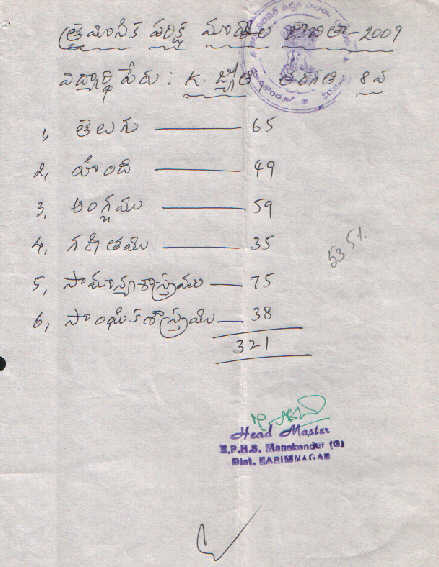 త్రైమాసిక పరీక్ష మార్కుల జాబితా - 2009
విద్యార్థి పేరు : K. జ్యోతి తరగతి 8వ
1, తెలుగు 65
2, హింది 49
3, ఆంగ్లము 59
4, గణితము 35
5, సామాన్యశాస్త్రము 75
6, సాంఘికశాస్త్రము 38
321
53.5%
Head Master
Z.P.H.S. Manakondur (G)
Dist. KARIMNAGAR